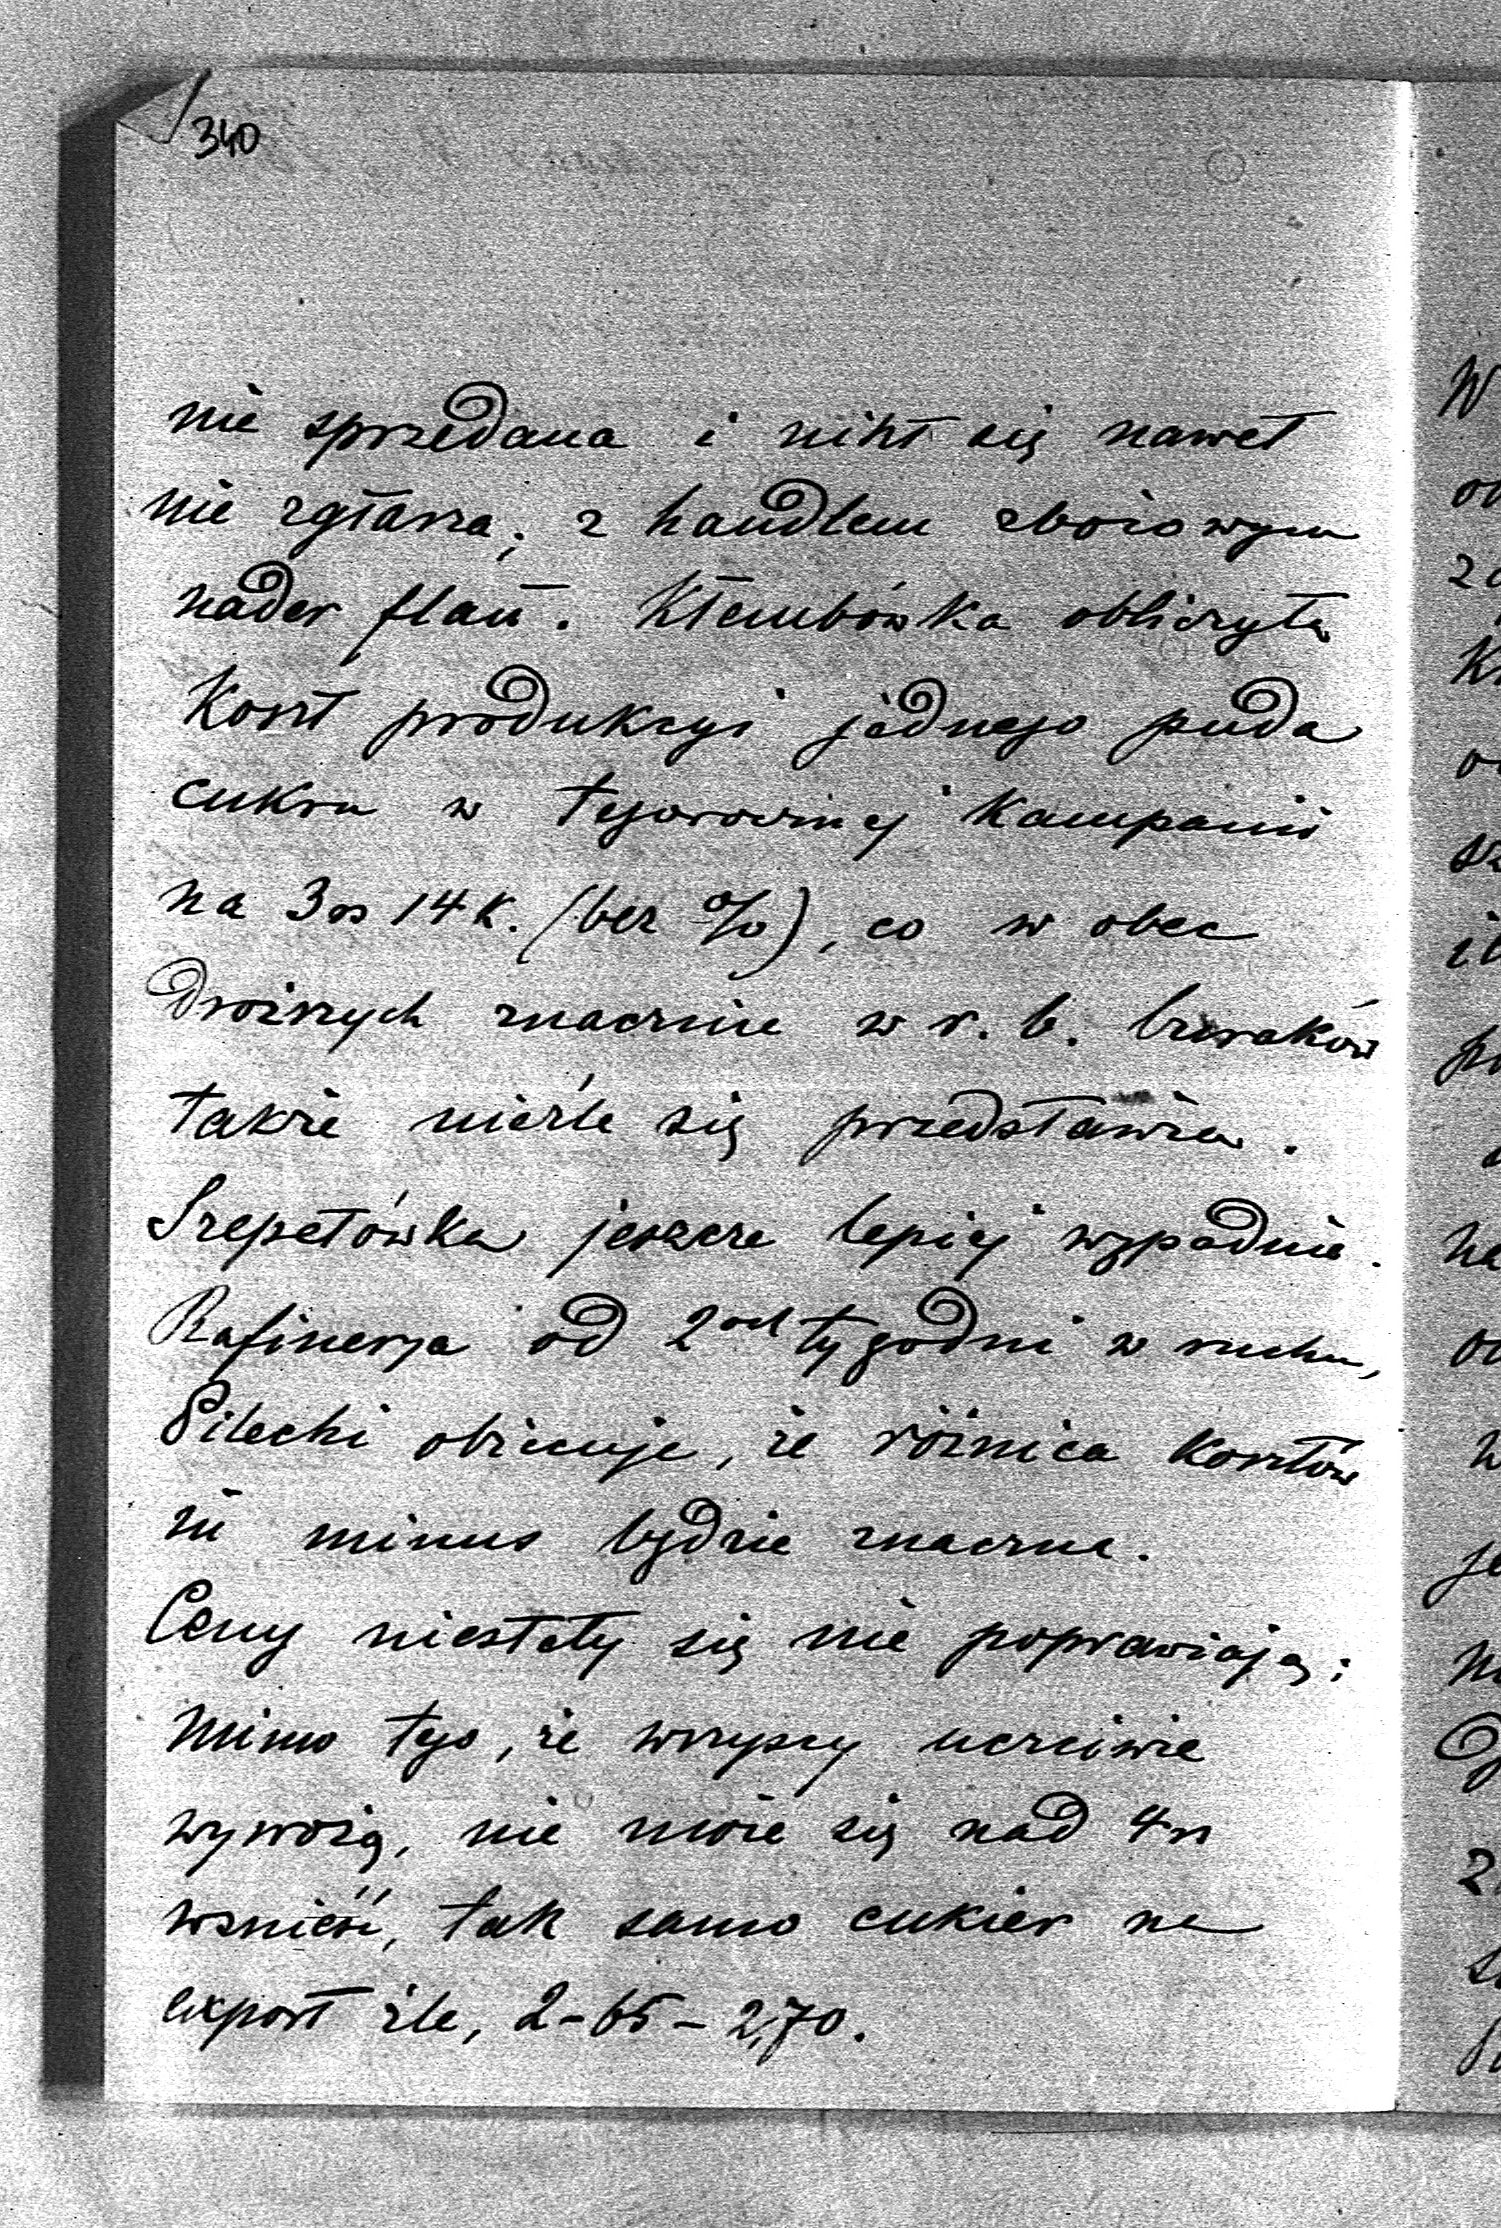 340
nie sprzedana i nikt się nawet
nie zgłasza; z handlem zbożowym
nader flau. Kłembówka obliczyła
koszt produkcyi jednego puda
cukru w tegorocznej kampanii
na 3 rs 14 k. (bez %), co w obec
droższych znacznie w r. b. buraków
także nieźle się przedstawia.
Szepetówka jeszcze lepiej wypadnie.
Rafinerya od 2och tygodni w ruchu,
Pilecki obiecuje, że różnica kosztów
in minus będzie znaczna.
Ceny niestety się nie poprawiają;
mimo tego, że wszyscy uczciwie
wywożą, nie może się nad 4 rs
wznieść, tak samo cukier na
export źle, 2-65 - 2,70.